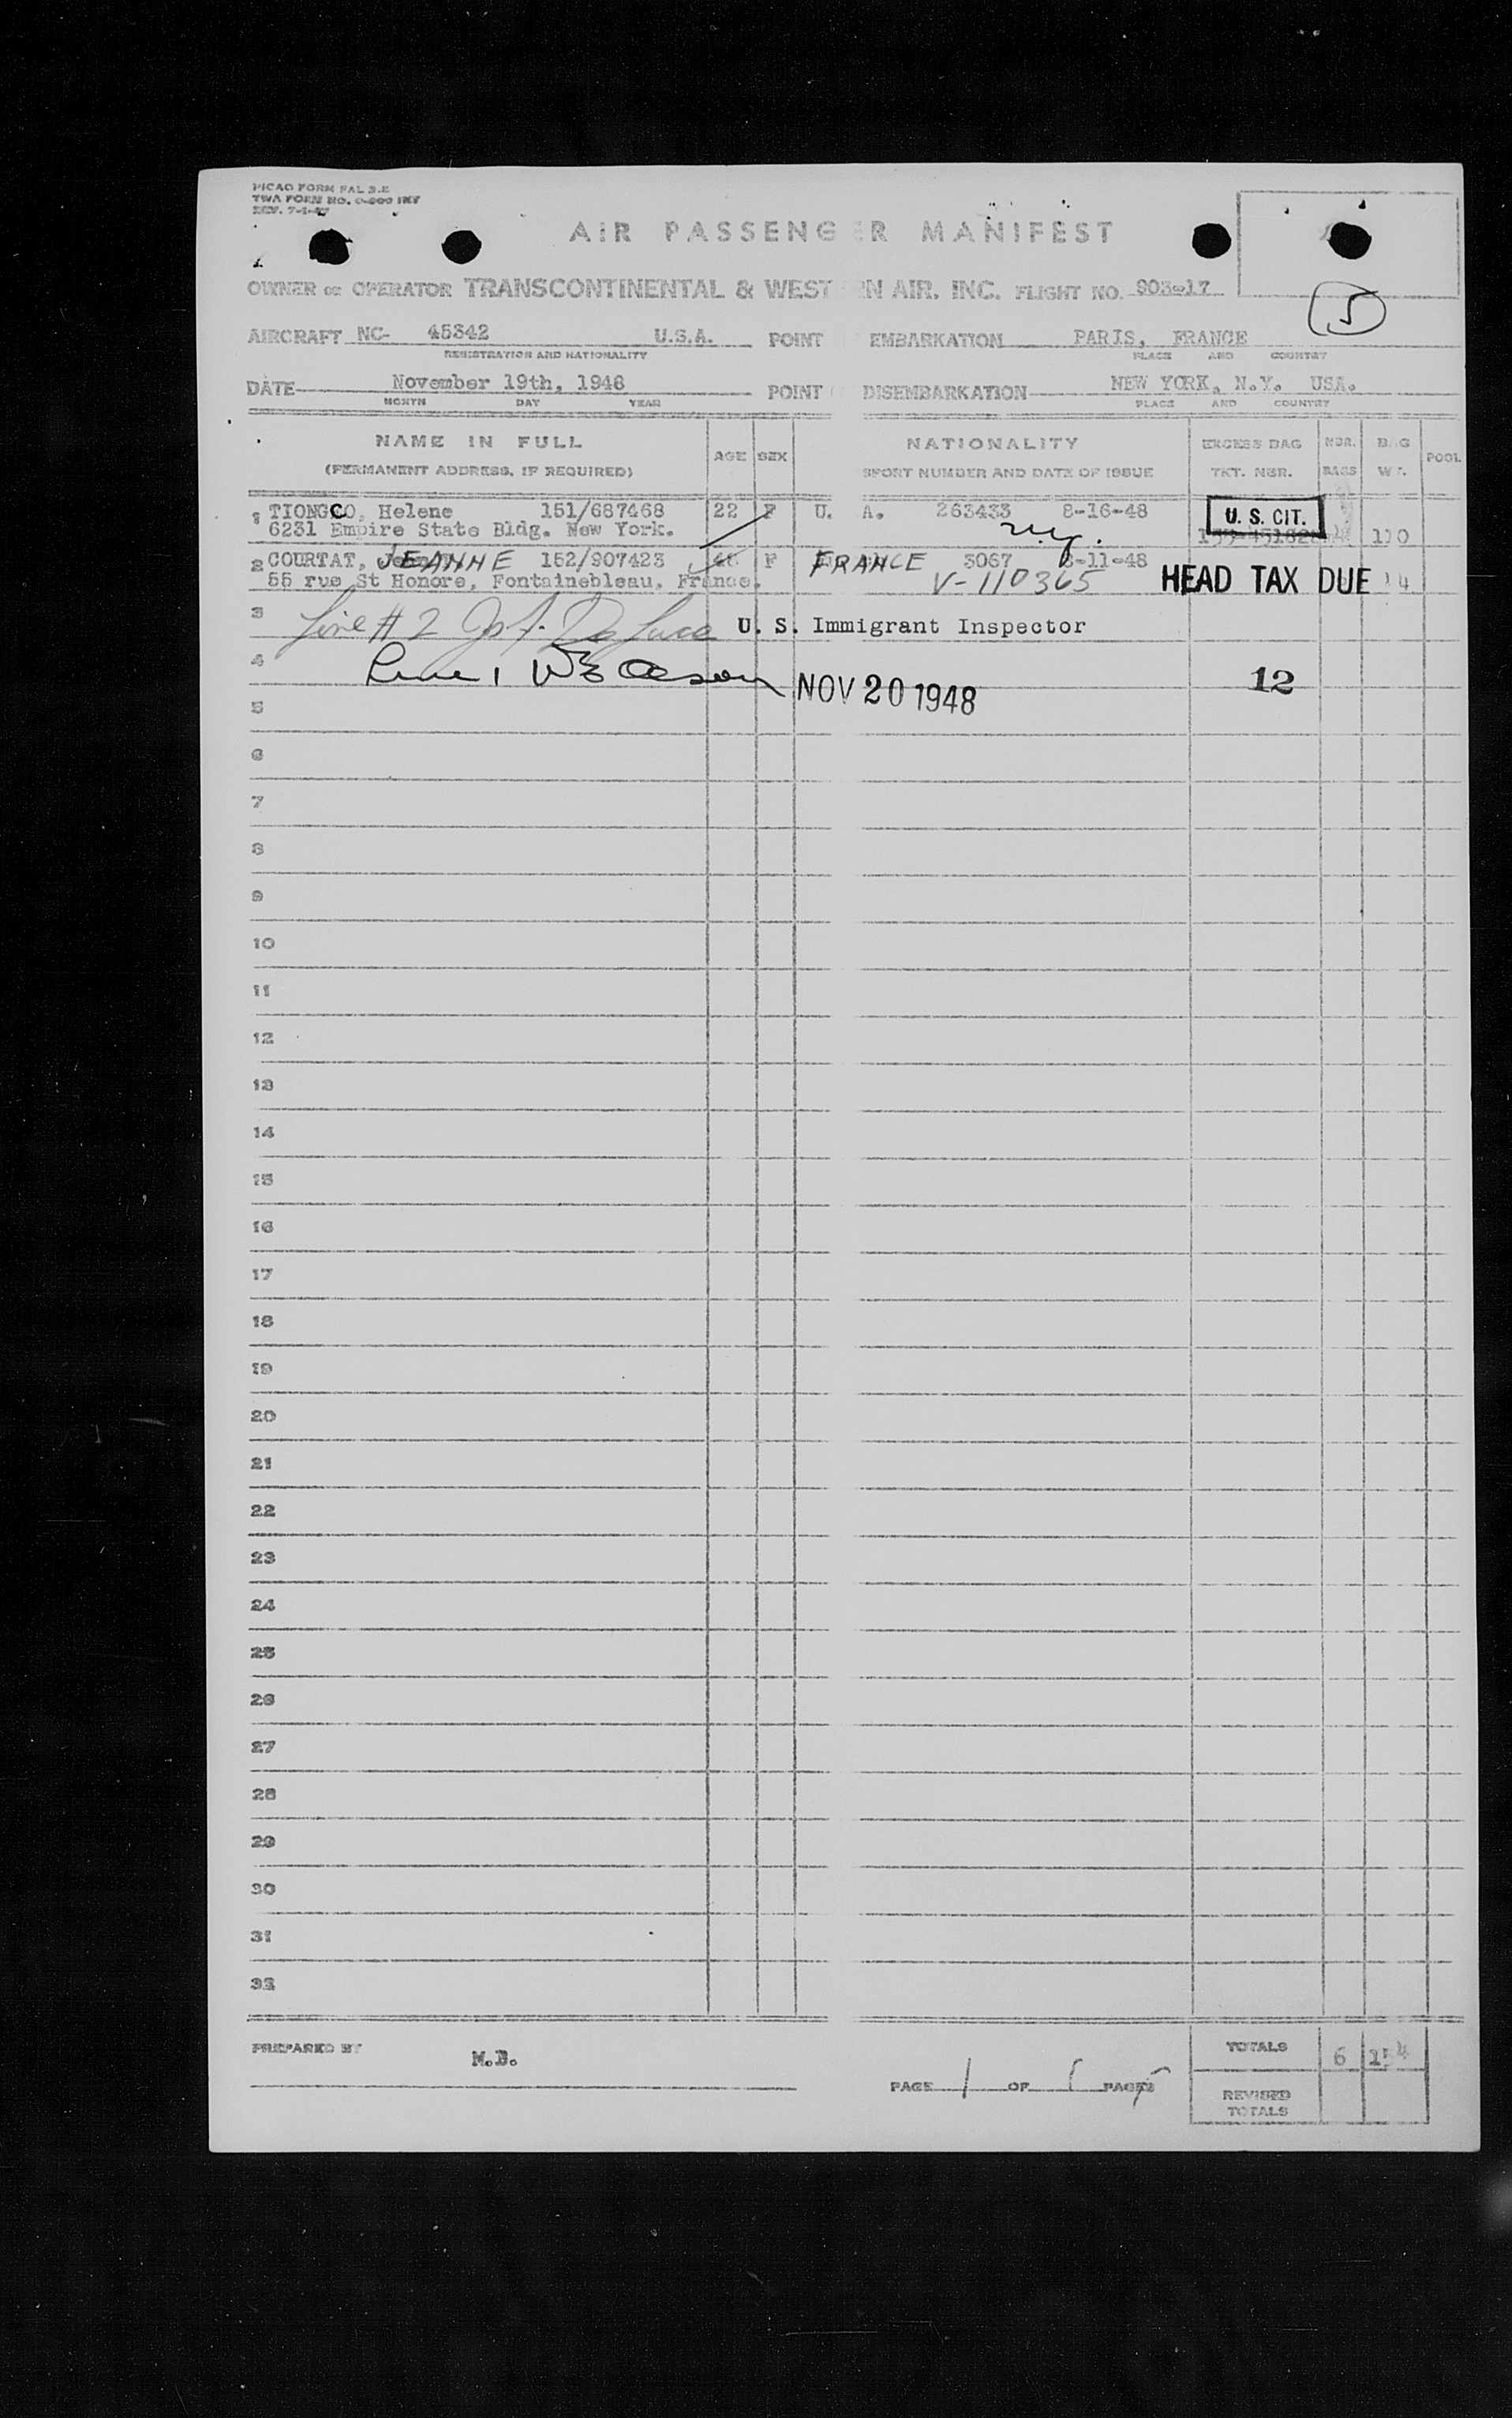 PICAO FORM FAL 3.E
TWA FORM NO. O-800 INT
REV. 7-1-47
AIR PASSENGER MANIFEST
OWNER or OPERATOR TRANSCONTINENTAL & WEST RN AIR. INC. FLIGHT NO. 903-17
5
AIRCRAFT NC- 45342 U.S.A. POINT EMBARKATION PARIS, FRANCE
REGISTRATION AND NATIONALITY PLACE AND COUNTRY
DATE November 19th, 1948 POINT DISEMBARKATION NEW YORK, N.Y. USA.
MONTH DAY YEAR PLACE AND COUNTRY
NAME IN FULL AGE SEX NATIONALITY EXCESS BAG NBR. BAG POOL
(PERMANENT ADDRESS, IF REQUIRED) SPORT NUMBER AND DATE OF ISSUE TKT. NBR. BAGS WT.
1 TIONGCO, Helene 151/687468 22 F U. A. 263433 8-16-48 U. S. CIT.
6231 Empire State Bldg. New York. n.y. 110
2 COURTAT, JEANNE 152/907423 F FRANCE 3067 8-11-48
55 rue St Honore, Fontainebleau, France. V-110365 HEAD TAX DUE
3 Line # 2 U. S. Immigrant Inspector
4 12
NOV 20 1948
5
6
7
8
9
10
11
12
13
14
15
16
17
18
19
20
21
22
23
24
25
26
27
28
29
30
31
32
PREPARED BY M.D. TOTALS 6 154
PAGE 1 OF PAGES
REVISED
TOTALS